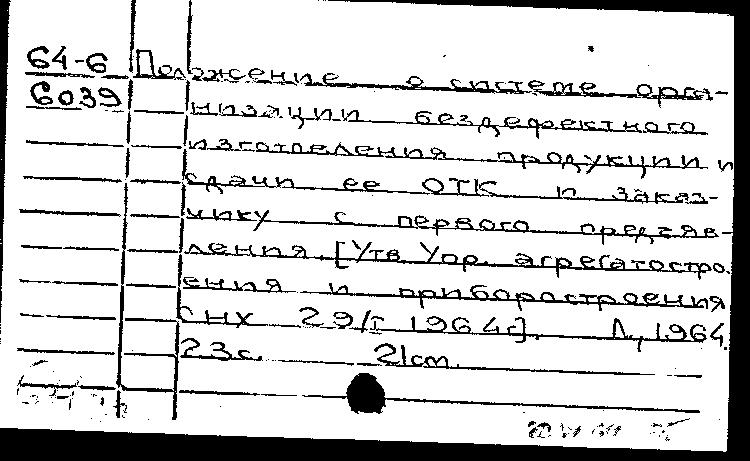 64-6 Положение о системе орга-
6039 низации бездефектного
изготовления продукции и
сдачи ее ОТК и заказ-
чику с первого предъяв-
ления. [Утв Упр. агрегатостро.
ения и приборостроения
СНХ 29/I 1964г]. Л, 1964.
23с. 21см.